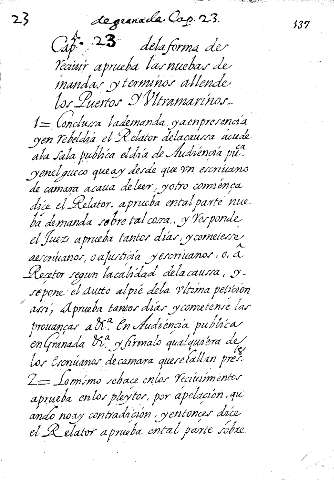 23
de granada Cap. 23.
137
Cap.º 23 dela forma de
recivir aprueba las nuebas de
mandas, y terminos allende
los Puertos Y Vltramarinos..
1= Conclusa la demanda, ya en presencia
y en rebeldia el Relator dela causa acude
ala Sala publica el dia de Audiencia
y en el gueco que ay desde que vn escrivano
de camara acava de leer, y otro comiença
dice el Relator, aprueba en tal parte nue
ba demanda sobre tal cosa, y Responde
el Juez aprueba tantos dias, y cometese
a escrivano, o a Justicia y escrivano, o, a
Resetor segun la calidad dela caussa, y
se pone el auto al pie de la vltima peticion
assi, Aprueba tantos dias y cometense las
provanças a D.n.ª En Audiencia publica
en Granada &.ª y firmalo qualquiera de
los Escrivanos de camara que se hallan pres.tes
2= Lo mismo se hace en los recivimientos
aprueba en los pleytos, por apelacion, qu
ando no ay contradicion, y entonces dice
el Relator aprueba en tal parte sobre